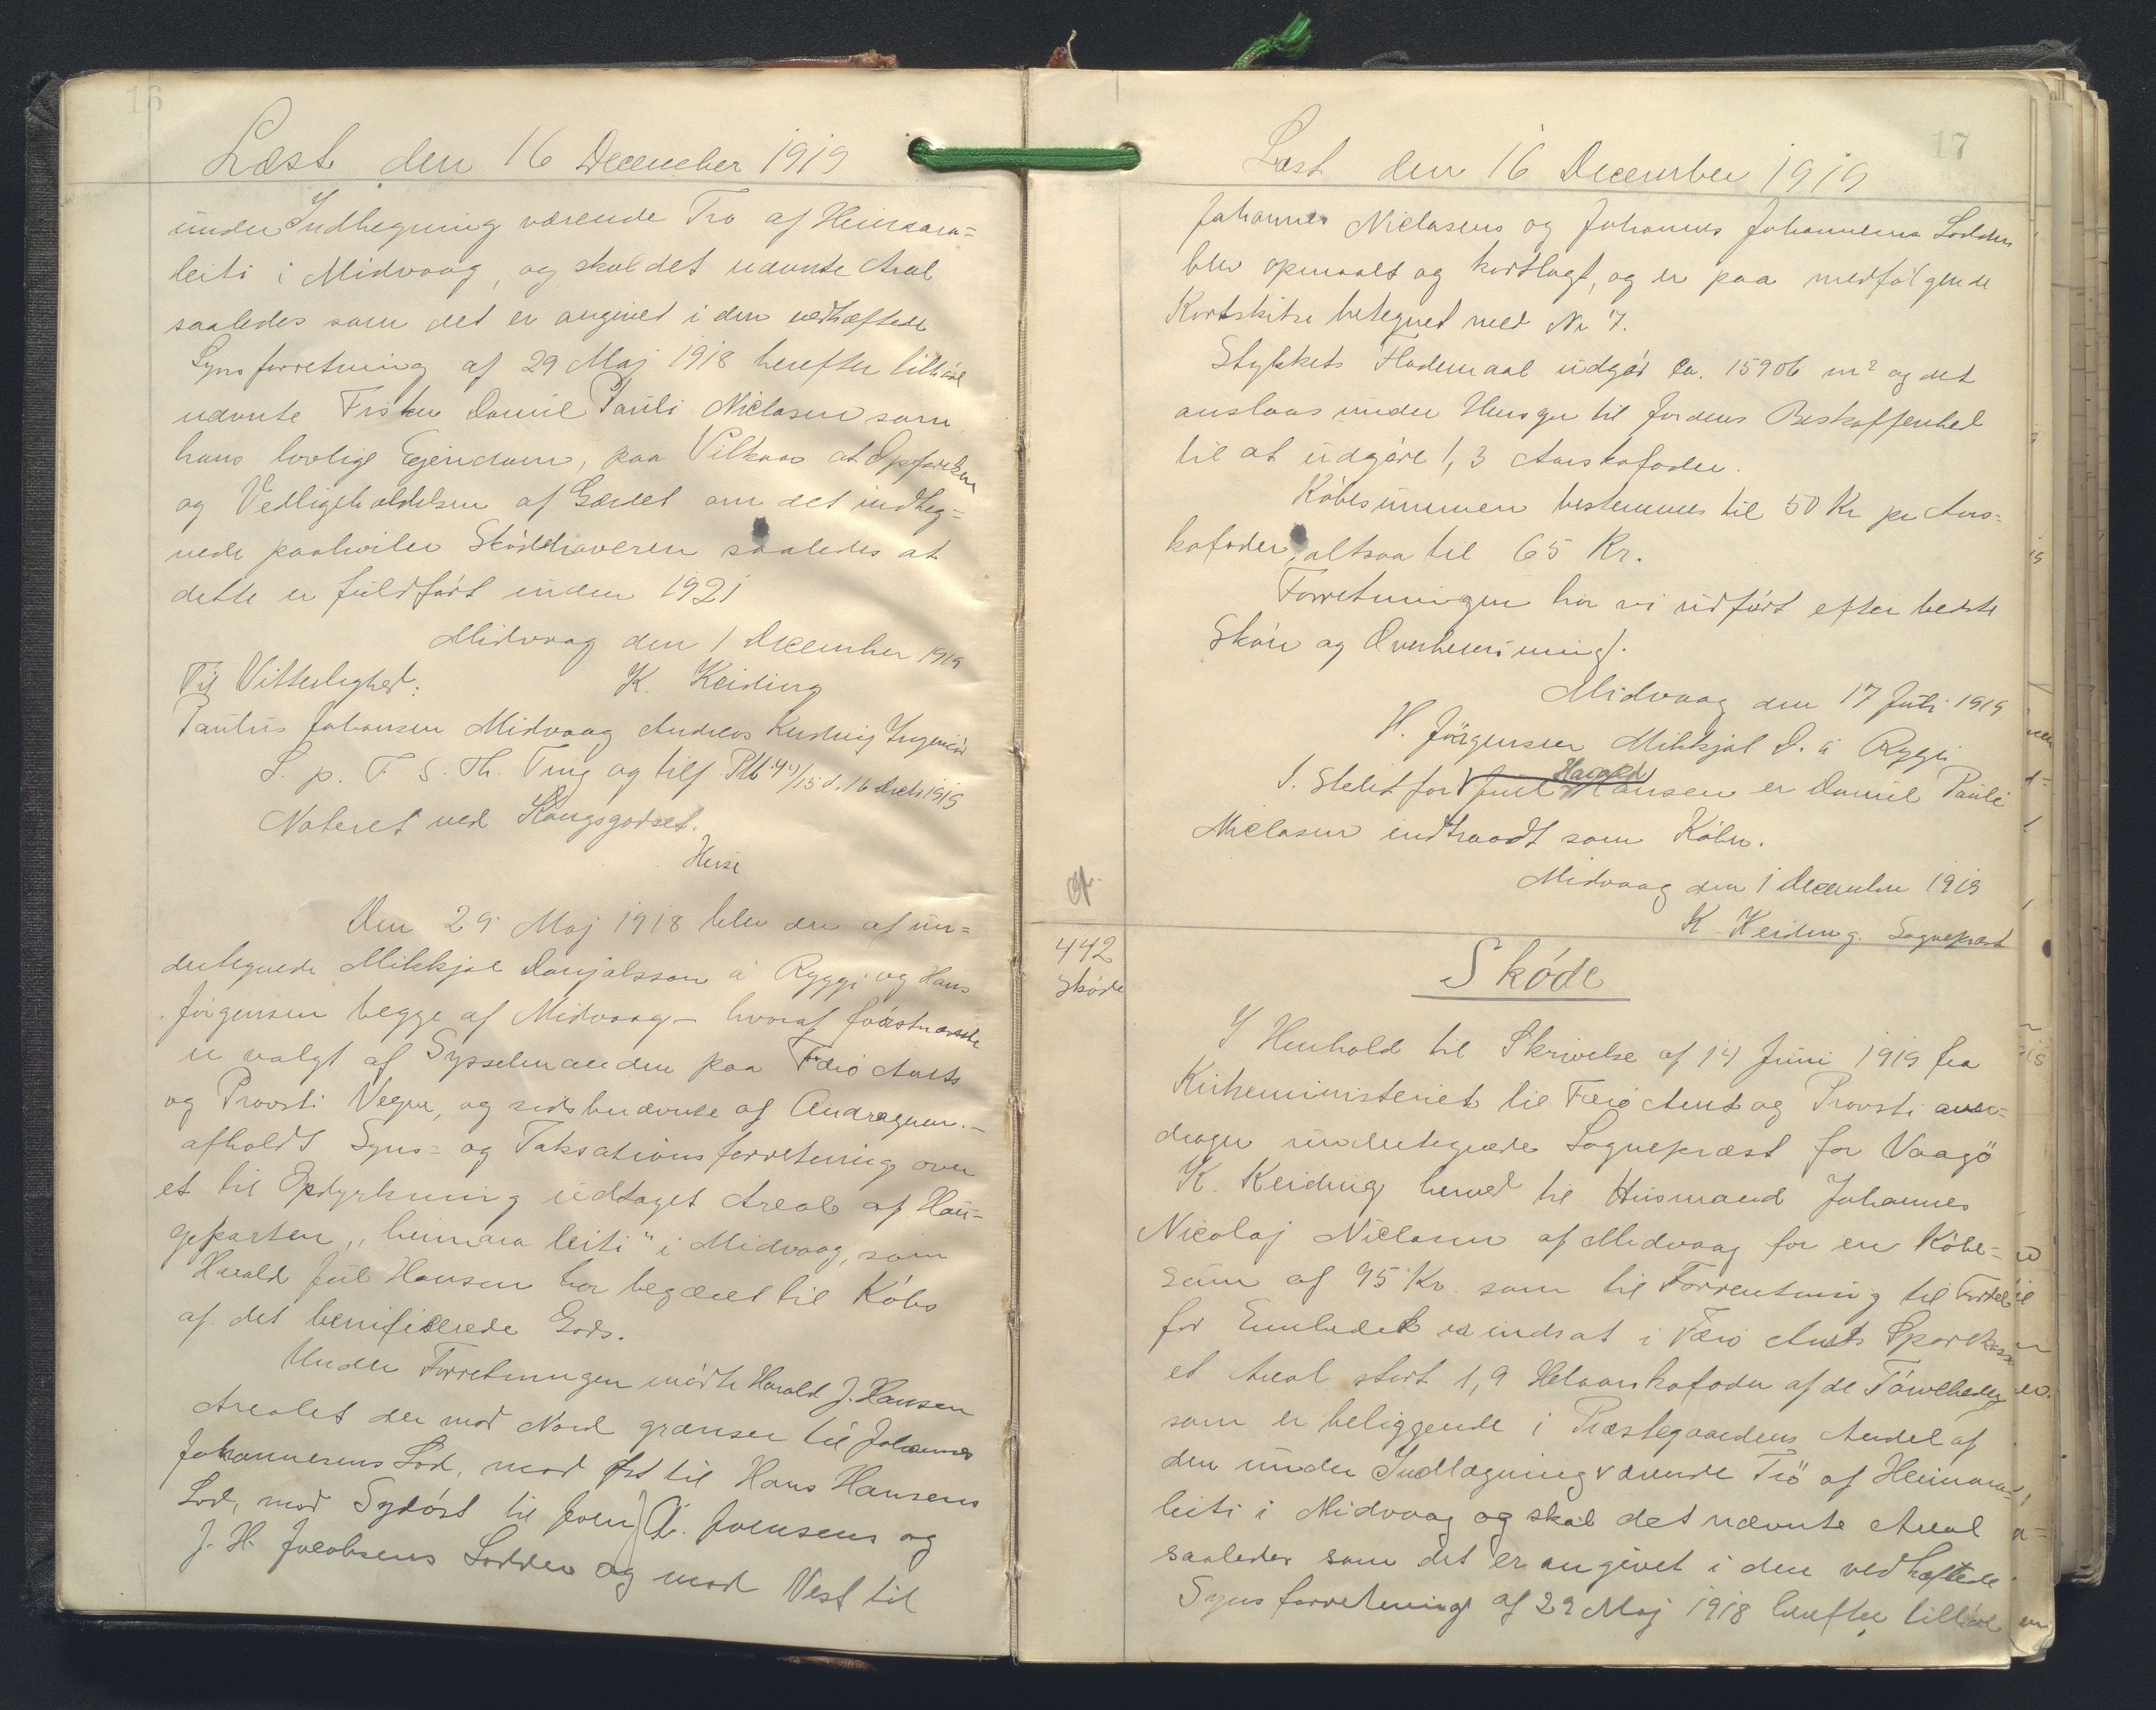 16
Læst den 16 December 1919
under Indhegning værende Trø af Heimara=
leiti i Midvaag, og skal det nævnte Areal
saaledes som det er angivet i den vedhæftede
Synsforretning af 29 Maj 1918 herefter tilhøre
nævnte Fisker Daniel Pauli Niclasen som
hans lovlige Ejendom, paa Vilkaar at Opførelsen
og Vedligeholdelsen af Gærdet om det indheg=
nede paahviler Skødehaveren saaledes at
dette er fuldført inden 1921
Midvaag den 1 December 1919
Til Vitterlighed: K. Keiding
Paulus Johansen Midvaag Andreas Ingeniør
L. p. F. S. Th. Ting og tilf. Ptb 44/15 d. 16 Decb 1919
Noteret ved Kongsgodset.
Heise
Den 29 Maj 1918 blev der af un=
dertegnede Mikkjal Danjalsson á Ryggi og Hans
Jørgensen begge af Midvaag – hvoraf førstnævnte
er valgt af Sysselmanden paa Færø Amts
og Provsti Vegne, og sidstnævnte af Andrageren. –
afholdt Syns= og Taksationsforretning over
et til Opdyrkning udtaget Areal af Hau=
geparten „heimara leiti" i Midvaag, som
Harald Juul Hansen har begæret til Købs
af det benificerede Gods.
Under Forretningen mødte Harald J. Hansen
Arealet der mod Nord grænser til Johannes
Johannesens Lod, mod Øst til Hans Hansens
Lod, mod Sydøst til Joen A. Joensens og
J. H. Jacobsens Lodder og mod Vest til
17
Læst den 16 December 1919
Johannes Niclasens og Johannes Johannesens Lodder
blev opmaalt og kortlagt, og er paa medfølgende
Kortskitse betegnet med Nr 7.
Stykkets Flademaal udgør ca. 15906 m² og det
anslaas under Hensyn til Jordens Beskaffenhed
til at udgøre 1,3 Aarskofoder.
Købesummen bestemmes til 50 Kr pr Aars=
kofoder, altsaa til 65 Kr.
Forretningen har vi udført efter bedste
Skøn og Overbevisning.
Midvaag den 17 Juli 1919
H. Jörgensen Mikkjal D. á Ryggi
I Stedet for Juul Harald Hansen er Daniel Pauli
Niclasen indtraadt som Køber.
Midvaag den 1 December 1919
K. Keiding. Sognepræst
442
Skøde
Skøde
I Henhold til Skrivelse af 14 Juni 1919 fra
Kirkeministeriet til Færø Amt og Provsti over=
drager undertegnede Sognepræst for Vaagö
K. Keiding herved til Husmand Johannes
Nicolaj Niclasen af Midvaag for en Købe=
sum af 95 Kr. som til Forrentning til Fordel
for Embedet er indsat i Færø Amts Sparekasse
et Areal stort 1,9 Helaarskofoder af de
som er beliggende i Præstegaardens Andel af
den under Indhegning værende Trö af Heimara=
leiti i Midvaag og skal det nævnte Areal
saaledes som det er angivet i den vedhæftede
Synsforretning af 29 Maj 1918 herefter tilhøre